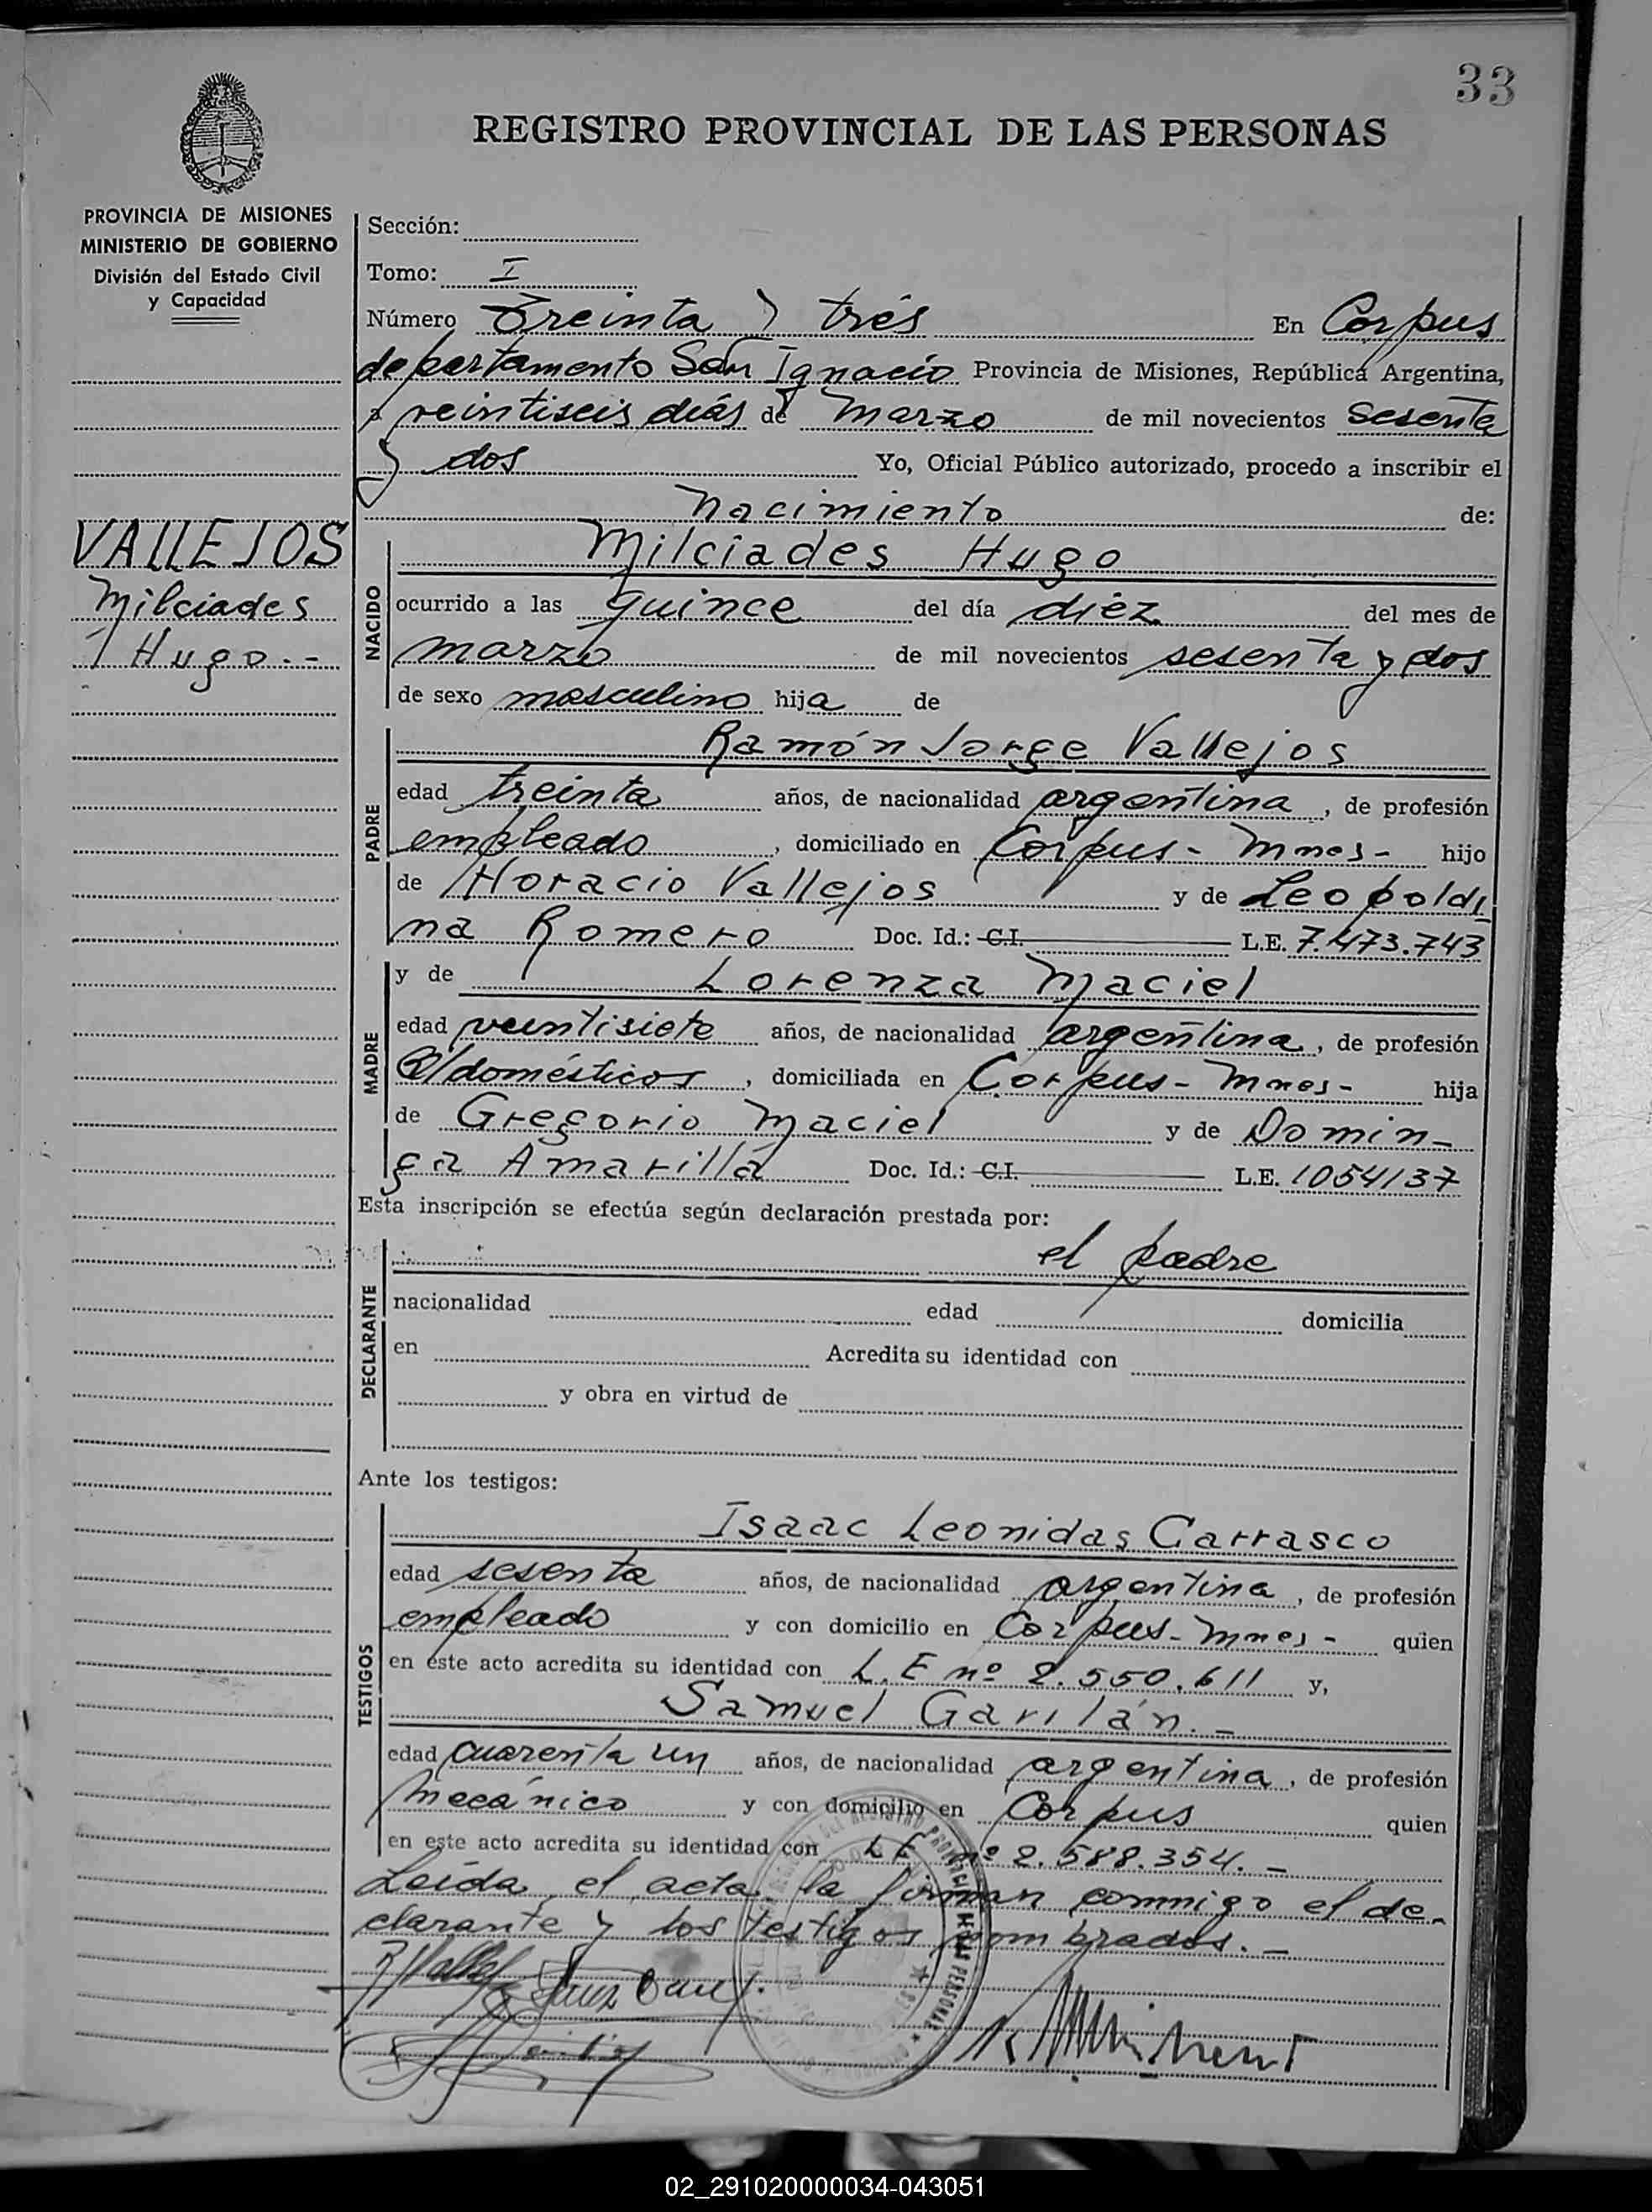 33
REGISTRO PROVINCIAL DE LAS PERSONAS
PROVINCIA DE MISIONES
MINISTERIO DE GOBIERNO
División del Estado Civil
y Capacidad
Sección:
Tomo: I
Número Treinta y trés En Corpus
departamento San Ignacio Provincia de Misiones, República Argentina,
a veintiseis días de marzo de mil novecientos sesenta
y dos Yo, Oficial Público autorizado, procedo a inscribir el
nacimiento de:
VALLEJOS
Milciades
Hugo.-
NACIDO
Milciades Hugo
ocurrido a las quince del día diéz del mes de
marzo de mil novecientos sesenta y dos
de sexo masculino hija de
PADRE
Ramón Jorge Vallejos
edad treinta años, de nacionalidad argentina, de profesión
empleado, domiciliado en Corpus- Mnes- hijo
de Horacio Vallejos y de Leopoldi
na Romero Doc. Id.: C.I. L.E. 7.473.743
MADRE
y de Lorenza Maciel
edad veintisiete años, de nacionalidad argentina, de profesión
Q/domésticos, domiciliada en Corpus- Mnes- hija
de Gregorio Maciel y de Domin-
ga Amarilla Doc. Id.: C.I. L.E. 1054137
Esta inscripción se efectúa según declaración prestada por:
DECLARANTE
el padre
nacionalidad edad domicilia
en Acredita su identidad con
y obra en virtud de
Ante los testigos:
TESTIGOS
Isaac Leonidas Carrasco
edad sesenta años, de nacionalidad argentina, de profesión
empleado y con domicilio en Corpus- Mnes- quien
en este acto acredita su identidad con L.E nº 2.550.611 y,
Samuel Gavilán.-
edad cuarenta un años, de nacionalidad argentina, de profesión
mecánico y con domicilio en Corpus quien
en este acto acredita su identidad con LE nº 2.588.354.-
Leída el acta, la firman conmigo el de-
clarante y los testigos nombrados.-
02_291020000034-043051